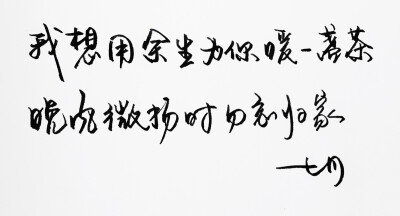 我想用余生为你暖一盏茶
晚风微扬时勿忘归家
七月